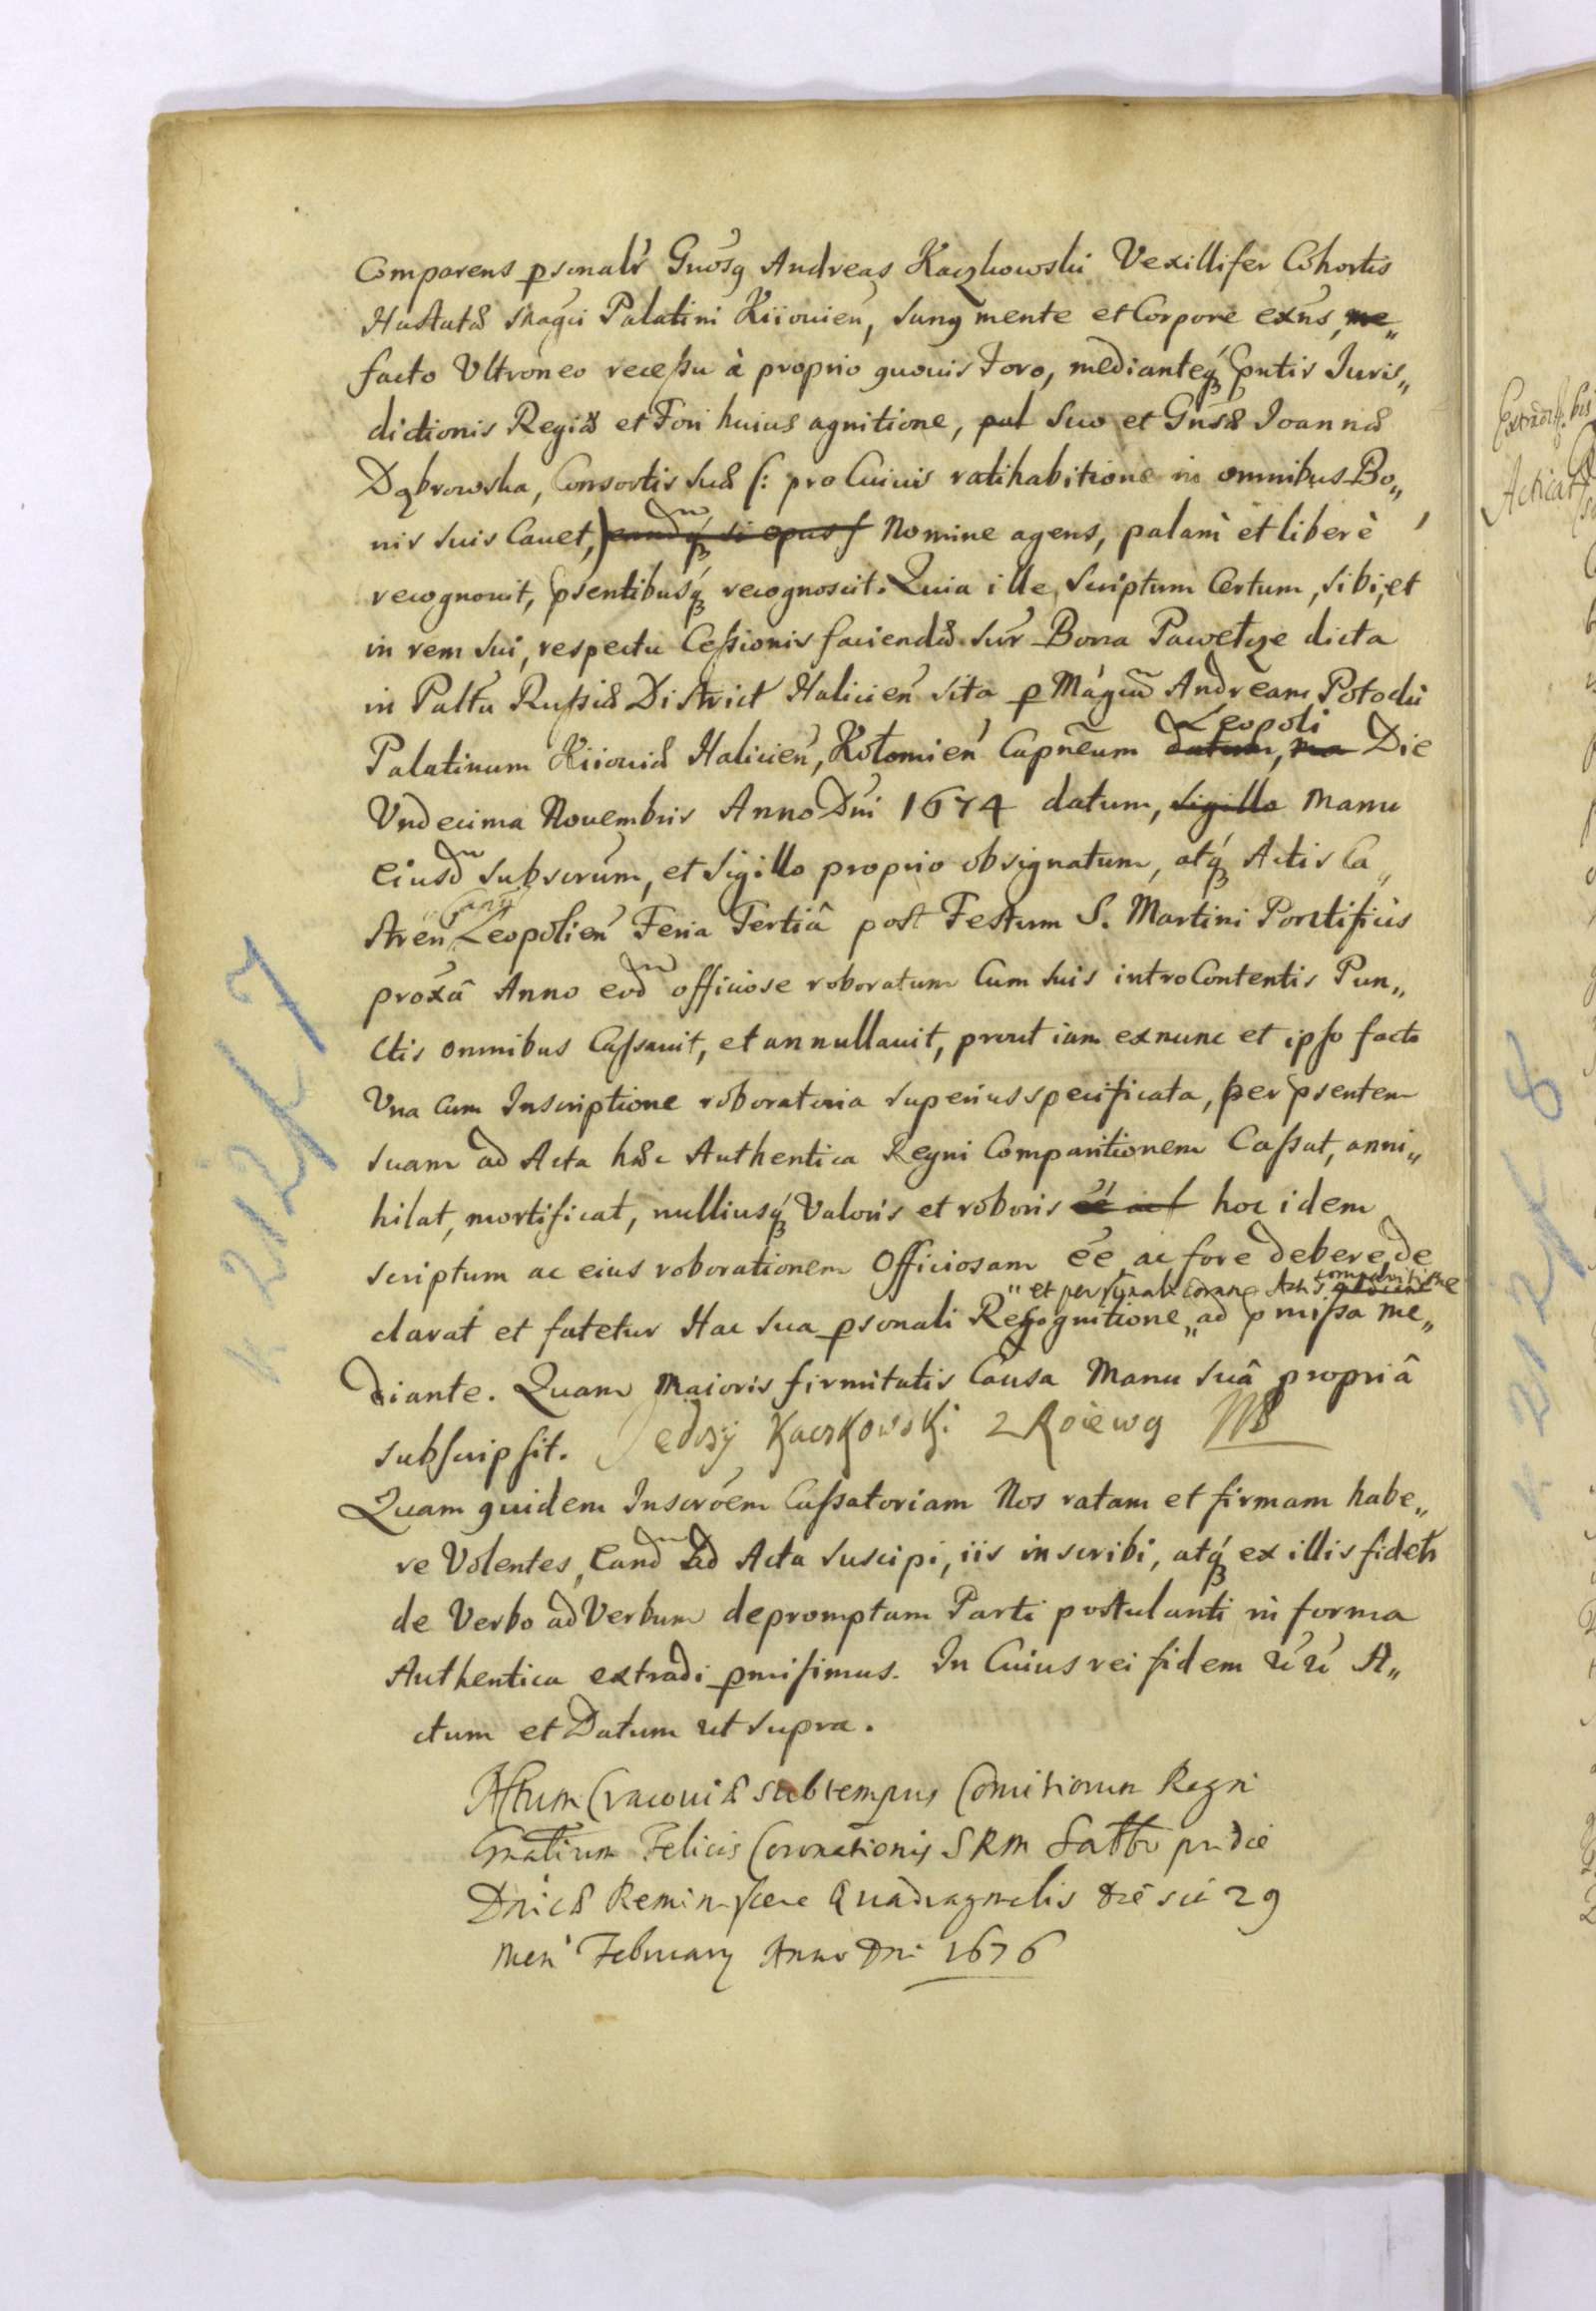 Comparens psonalr Gnosq Andreas Kaczkowski Vexillifer Cohortis
Hastatæ Magci Palatini Kiiouien, sanq mente et Corpore exns, me„
facto Vltroneo recessu à proprio quouis Foro, medianteq Pntis Juris„
dictionis Regiæ et Fori huius agnitione, pal suo et Gnsæ Joannæ
Dąbrowska, Consortis suæ (: pro Cuius ratihabitione in omnibus Bo„
nis suis Cauet,) eandq si opus Nomine agens, palam et liberè
recognouit, psentibusq recognoscit. Quia ille, scriptum Certum, sibi, et
in rem sui, respectu Cessionis faciendæ supr Bona Pawełcze dicta
in Paltu Russiæ District Halicien sita p Magcu Andream Potocki
Leopoli
Palatinum Kiiouiæ Halicien, Kołomien Capneum datum, ma Die
Vndecima Nouembris Anno Dni 1674 datum, sigillo Manu
eiusd subscrum, et sigillo proprio obsignatum, atq Actis Ca„
Cang
stren Leopolien Feria Tertiâ post Festum S. Martini Pontificis
proxâ Anno eod officiose roboratum Cum suis introContentis Pun„
ctis omnibus Cassauit, et annullauit, prout iam exnunc et ipso facto
Vna Cum Inscriptione roboratoria superius specificata, per psentem
suam ad Acta hæc Authentica Regni Comparitionem Cassat, anni„
hilat, mortificat, nulliusq Valoris et roboris eé ac hoc idem
scriptum ac eius roborationem Officiosam eé, ac fore debere, de
„et personali coram Actis comparitione
clarat et fatetur Hac sua psonali Recognitione „ad pmissa me„
diante. Quam Maioris firmitatis Causa Manu suâ propriâ
subscripsit. Jedrzy Kaczkowski 2Roiewg
Quam quidem Inscroem Cassatoriam Nos ratam et firmam habe„
re Volentes, Eand ad Acta suscipi, iis inscribi, atq ex illis fidelr
de Verbo ad Verbum depromptam Parti postulanti in forma
Authentica extradi pmisimus. In Cuius rei fidem ruru A„
ctum et Datum ut supra.
Actum Cracouiæ sub tempus Comitiorum Regni
Gnalium Felicis Coronationis SRM Sabbo pridie
Dnicæ Reminiscere Quadragmalis die sci 29
Men February Anno Dni 1676